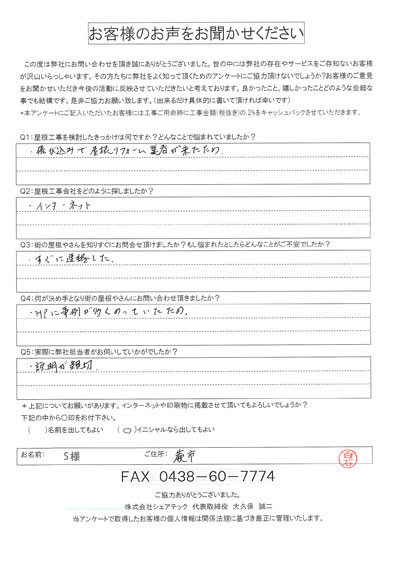 お客様のお声をお聞かせください
この度は弊社にお問い合わせを頂き誠にありがとうございました。世の中には弊社の存在やサービスをご存知ないお客様
が沢山いらっしゃいます。その方たちに弊社をよく知って頂くためのアンケートにご協力頂けないでしょうか?お客様のご意見
をお聞かせいただき今後の活動に反映させていただきたいと考えております。良かったこと、嬉しかったことどのような些細な
事でも結構です。是非ご協力お願い致します。(出来るだけ具体的に書いて頂ければ幸いです)
*本アンケートにご記入いただいたお客様には工事ご用命時に工事金額(税抜き)の2%をキャッシュバックさせていただきます。
Q1:屋根工事を検討したきっかけは何ですか?どんなことで悩まれていましたか?
・飛び込みで屋根リフォーム業者が来たため。
Q2:屋根工事会社をどのように探しましたか?
・インターネット
Q3:街の屋根やさんを知りすぐにお問合せ頂けましたか?もし悩まれたとしたらどんなことがご不安でしたか?
・すぐに連絡した。
Q4:何が決め手となり街の屋根やさんにお問い合わせ頂きましたか?
・HPに事例が多くのっていたため。
Q5:実際に弊社担当者がお伺いしていかがでしたか?
・説明が親切
*上記についてお願いがあります。インターネットや印刷物に掲載させて頂いてもよろしいでしょうか?
下記の中から〇印をお付下さい。
( )名前を出してもよい (〇)イニシャルなら出してもよい
お名前: S様 ご住所: 蕨市
FAX 0438-60-7774
ご協力ありがとうございました。
株式会社シェアテック 代表取締役 大久保 誠二
当アンケートで取得したお客様の個人情報は関係法規に基づき厳正に管理いたします。